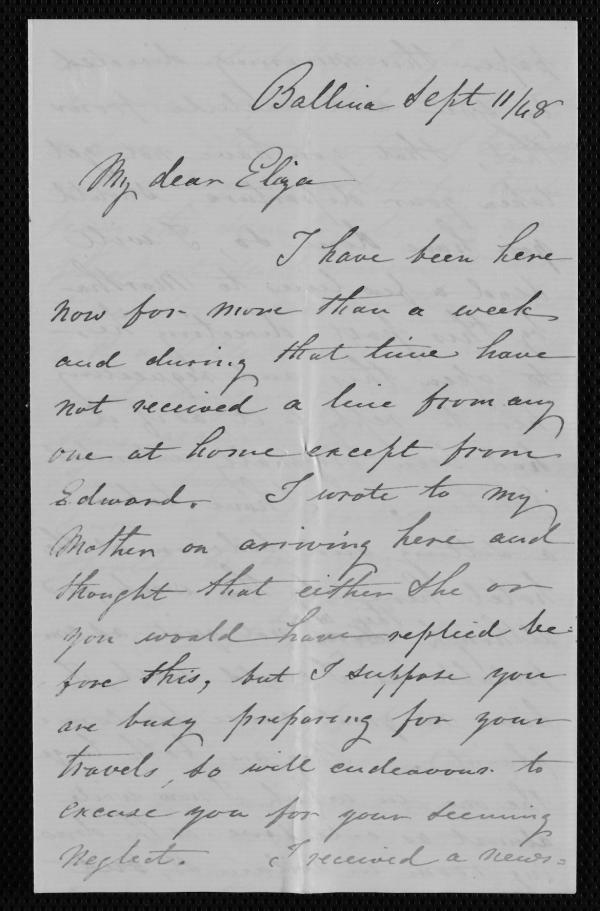 Ballina Sept 11/48
My dear Eliza
I have been here
now for more than a week
and during that time have
not received a line from any
one at home except from
Edward. I wrote to my
Mother on arriving here and
thought that either she or
you would have replied be-
fore this, but I suppose you
are busy preparing for your
travels, so will endeavour to
excuse you for your seeming
neglect. I received a news=